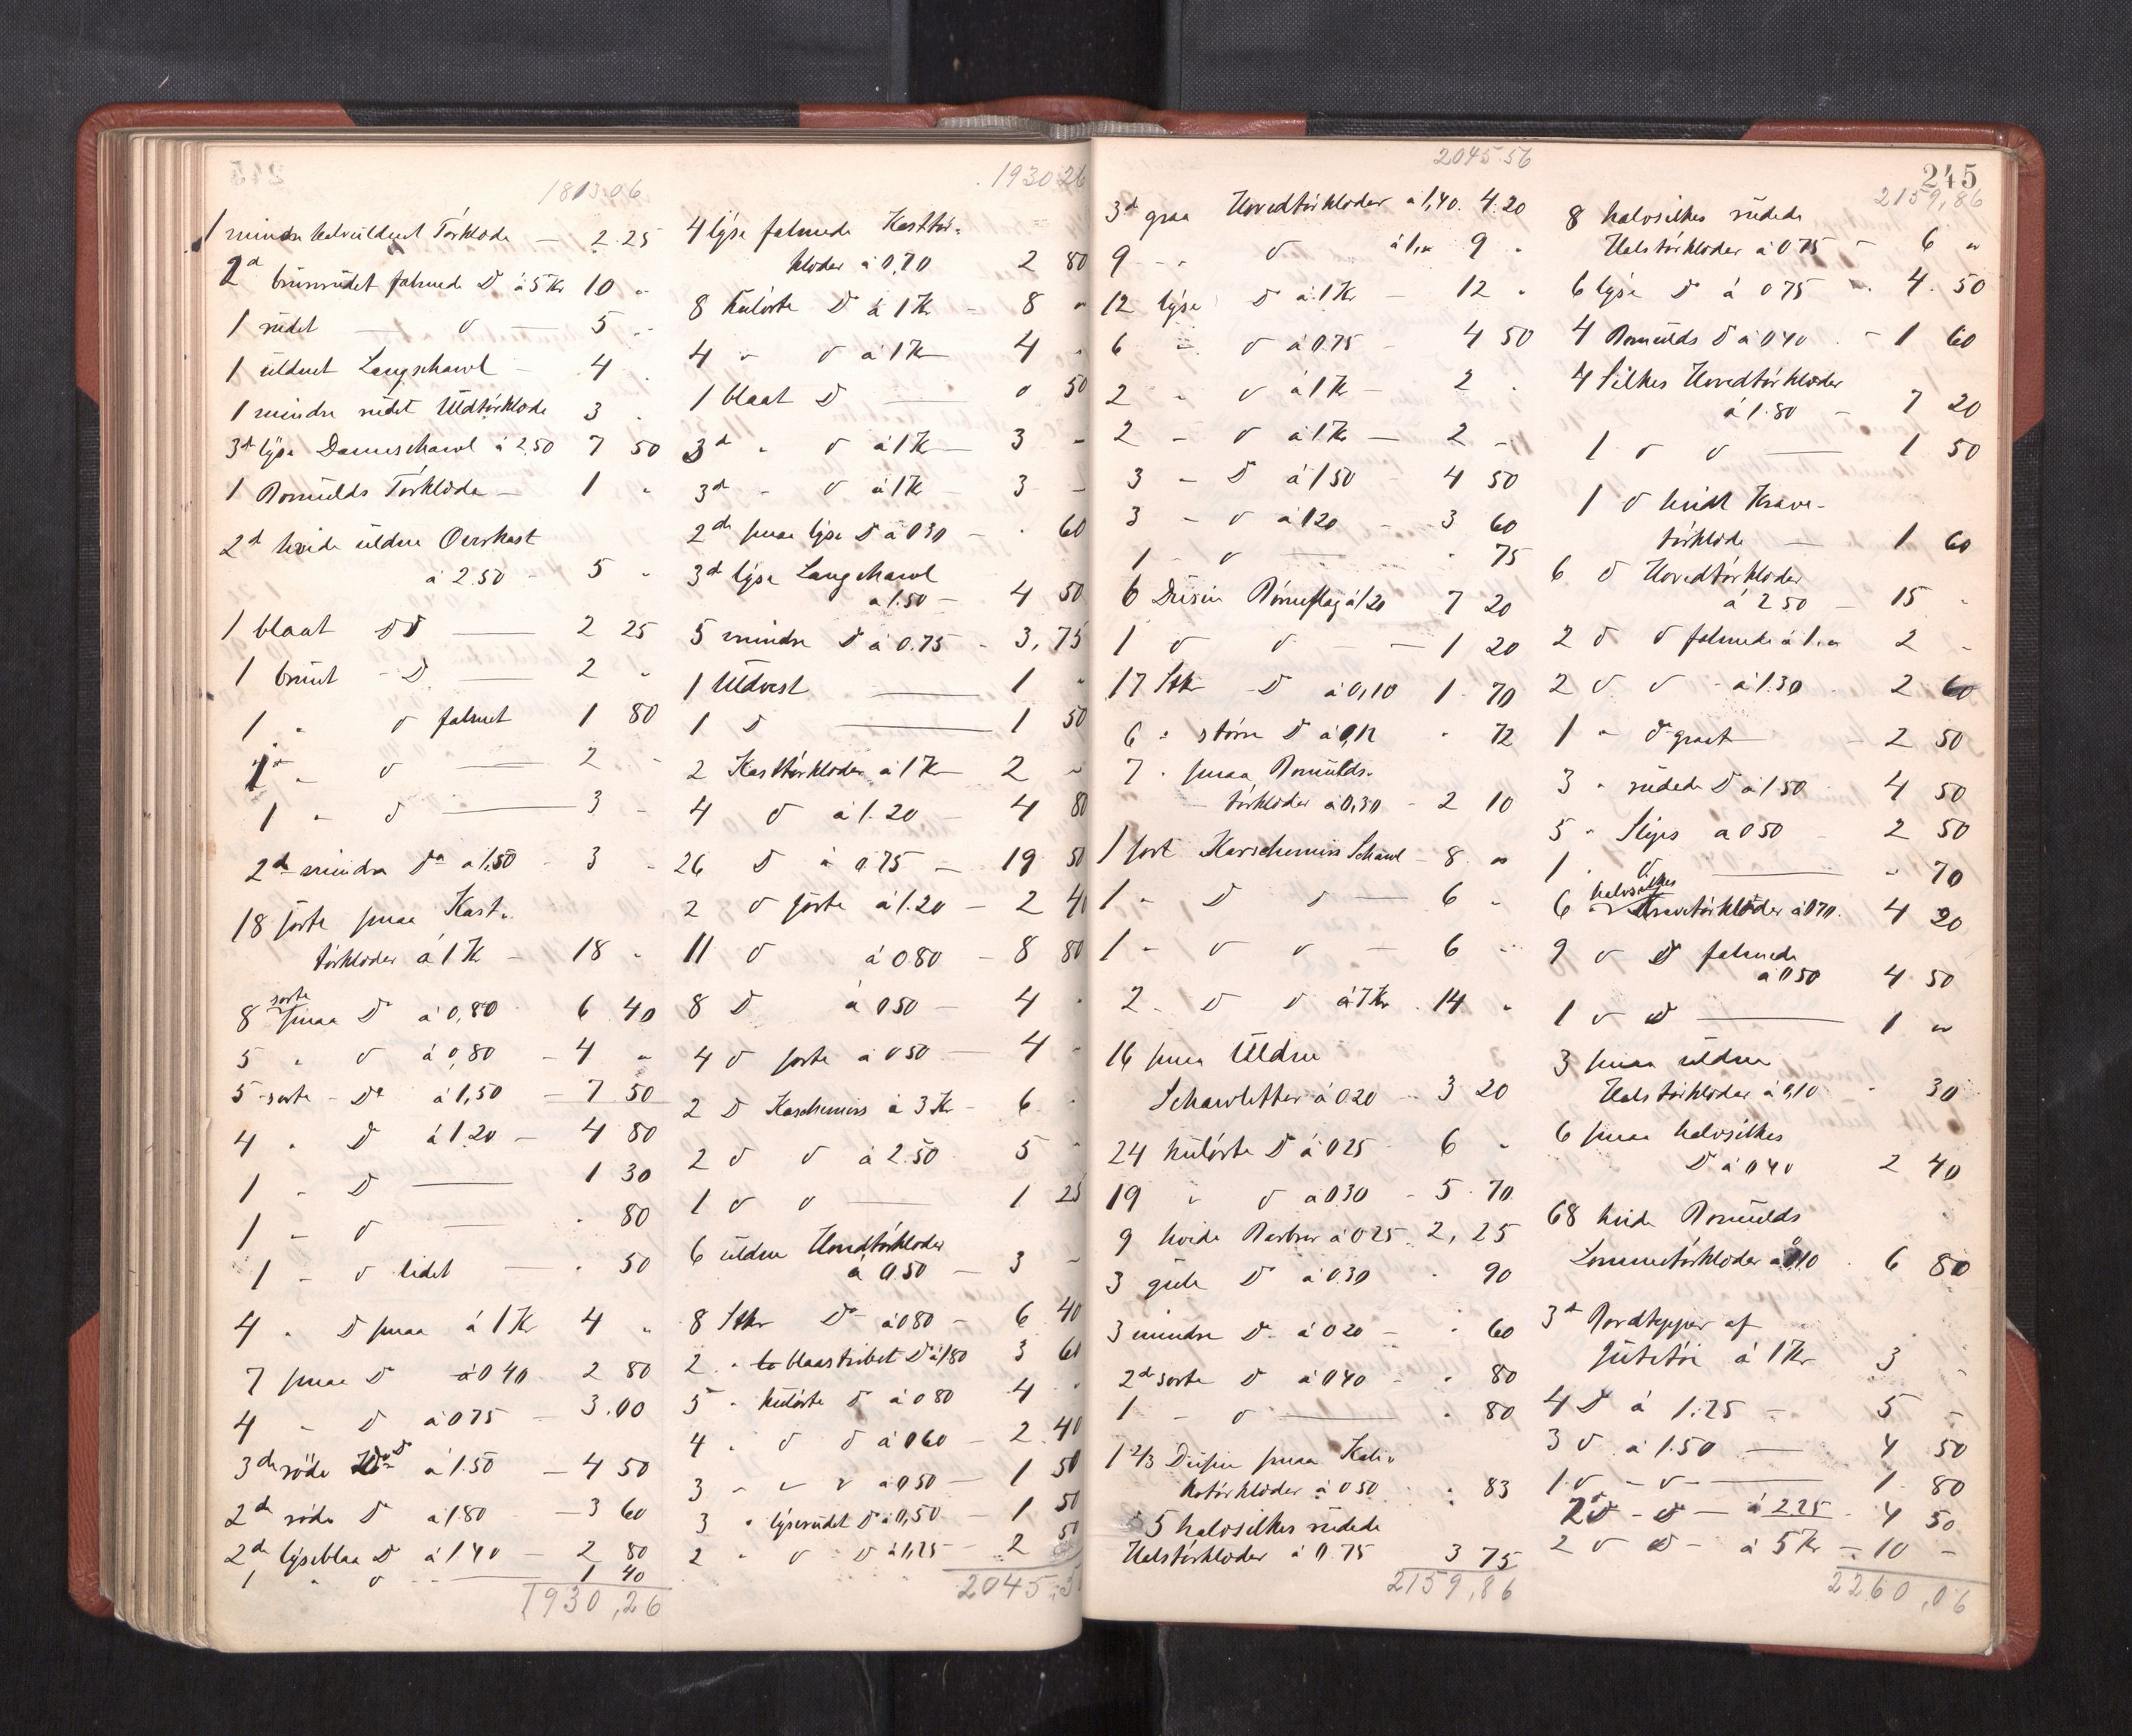 1813.06
1 mindre halvuldent Törklæde — 2.25
2 d brunrudet falmede D à 5 Kr 10 "
1 rudet — D — 5 "
1 uldent Langschawl — 4 "
1 mindre rudet Uldtörklæde 3 "
3 d lyse Dameschawl à 2.50 7 50
1 Bomulds Törklæde — 1 "
2 d hvide uldne Overkast
à 2.50 - 5 "
1 blaat D D — 2 25
1 brunt - D — 2 "
1 " D falmet 1 80
1 " D — 2 "
1 " D — 3 "
2 d mindre Do à 1.50 - 3 "
18 sorte smaa Kast-
törklæder à 1 Kr - 18 "
8 sorte smaa Do à 0,80 6 40
5 " D à 0,80 - 4 "
5 sorte - Do à 1,50 - 7 50
4 " D à 1.20 - 4 80
1 - D — 1 30
1 - D — " 80
1 - D lidet — " 50
4 " D smaa à 1 Kr 4 "
7 smaa D à 0 40 2 80
4 - D à 0 75 - 3.00
3 d röde D à 1.50 - 4 50
2 d röde D à 1 80 - 3 60
2 d lyseblaa D à 1 40 - 2 80
1 " D — 1 40
1930,26
1930 26
4 lyse falmede Kasttör-
klæder à 0,70 2 80
8 kulörte D à 1 Kr - 8 "
4 " D à 1 Kr 4 "
1 blaat D — 0 50
3 d " D à 1 Kr - 3 -
3 d - D à 1 Kr - 3 -
2 d smaa lyse D à 0 30 - " 60
3 d lyse Langschawl
à 1.50 - 4 50
5 mindre D à 0.75 - 3,75
1 Uldvest — 1 "
1 D — 1 50
2 Kasttörklæder à 1 Kr 2 "
4 D à 1.20 - 4 80
26 D à 0 75 - 19 50
2 D sorte à 1.20 - 2 40
11 D à 0 80 - 8 80
8 D à 0 50 - 4 "
4 D sorte à 0 50 - 4 -
2 D Kaschemirs à 3 Kr - 6 "
2 D D à 2.50 5 "
1 D D — 1 25
6 uldne Hovedtörklæder
à 0.50 - 3 -
8 Stkr Do à 0 80 - 6 40
2 " blaastribet D à 1 80 3 60
5 " kulörte D à 0 80 4 "
4 " D D à 0 60 - 2.40
3 - D D à 0 50 - 1 50
3 " lyserudet D à 0,50 - 1 50
2 " D D à 1,25 - 2 50
2045.5
2045.56
3 d graa Hovedtörklæder à 1,40. 4.20
9 - " D à 1,00 9 "
12 lyse D à 1 Kr - 12 "
6 " D à 0.75 - 4 50
2 " D à 1 Kr - 2 "
2 - D à 1 Kr - 2 -
3 - D à 1 50 4 50
3 - D à 1 20 - 3 60
1 - D — " 75
6 Dusin à 1 20 7 20
1 D D — 1 20
17 Stkr D à 0,10 1 70
6 " större D à 0,12 " 72
7 " smaa Bomulds-
törklæder à 0,30 - 2 10
1 sort Karschemirs Schawl - 8 "
1 - D D — 6 "
1 - D D — 6 "
2 - D D à 7 Kr 14 "
16 smaa Uldne
Schawletter à 0 20 - 3 20
24 kulörte D à 0 25 6 "
19 " D à 0 30 - 5 70
9 hvide à 0 25 2,25
3 gule D à 0.30 " 90
3 mindre D - à 0 20 - " 60
2 d sorte D à 0 40 - " 80
1 - D — " 80
1 2/3 Dusin smaa Kali-
kotörklæder à 0 50 " 83
5 halvsilkes rudede
Halstörklæder à 0.75 3 75
2159,86
245
2159,86
8 halvsilkes rudede
Halstörklæder à 0 75 - 6 "
6 lyse D à 0 75 4.50
4 Bomulds D à 0 40 - 1 60
4 Silkes Hovedtörklæder
à 1.80 - 7 20
1 D D — 1 50
1 D hvidt Krave-
törklæde — 1 60
6 D Hovedtörklæder
à 2 50 - 15 "
2 D D falmede à 1.00 2 -
2 D D - à 1.30 2 60
1 - D graat - 2 50
3 " rudede D à 1 50 4 50
5 " Slips à 0 50 2 50
1 " D — " 70
6 halvsilkes Kravetörklæder à 0 70. 4 20
9 D D falmede
à 0 50 4 50
1 D D — 1 "
3 smaa uldne
Halstörklæder à 0,10 " 30
6 smaa halvsilkes
D à 0 40 2 40
68 hvide Bomulds
Lommetörklæder à 0,10 6 80
3 d Bordtepper af
Jutetöi à 1 Kr 3 -
4 D à 1.25 - 5 -
3 D à 1.50 — 4 50
1 D - D — 1 80
2 D - D - à 2.25 4 50
2 D D - à 5 Kr - 10 -
2260,06